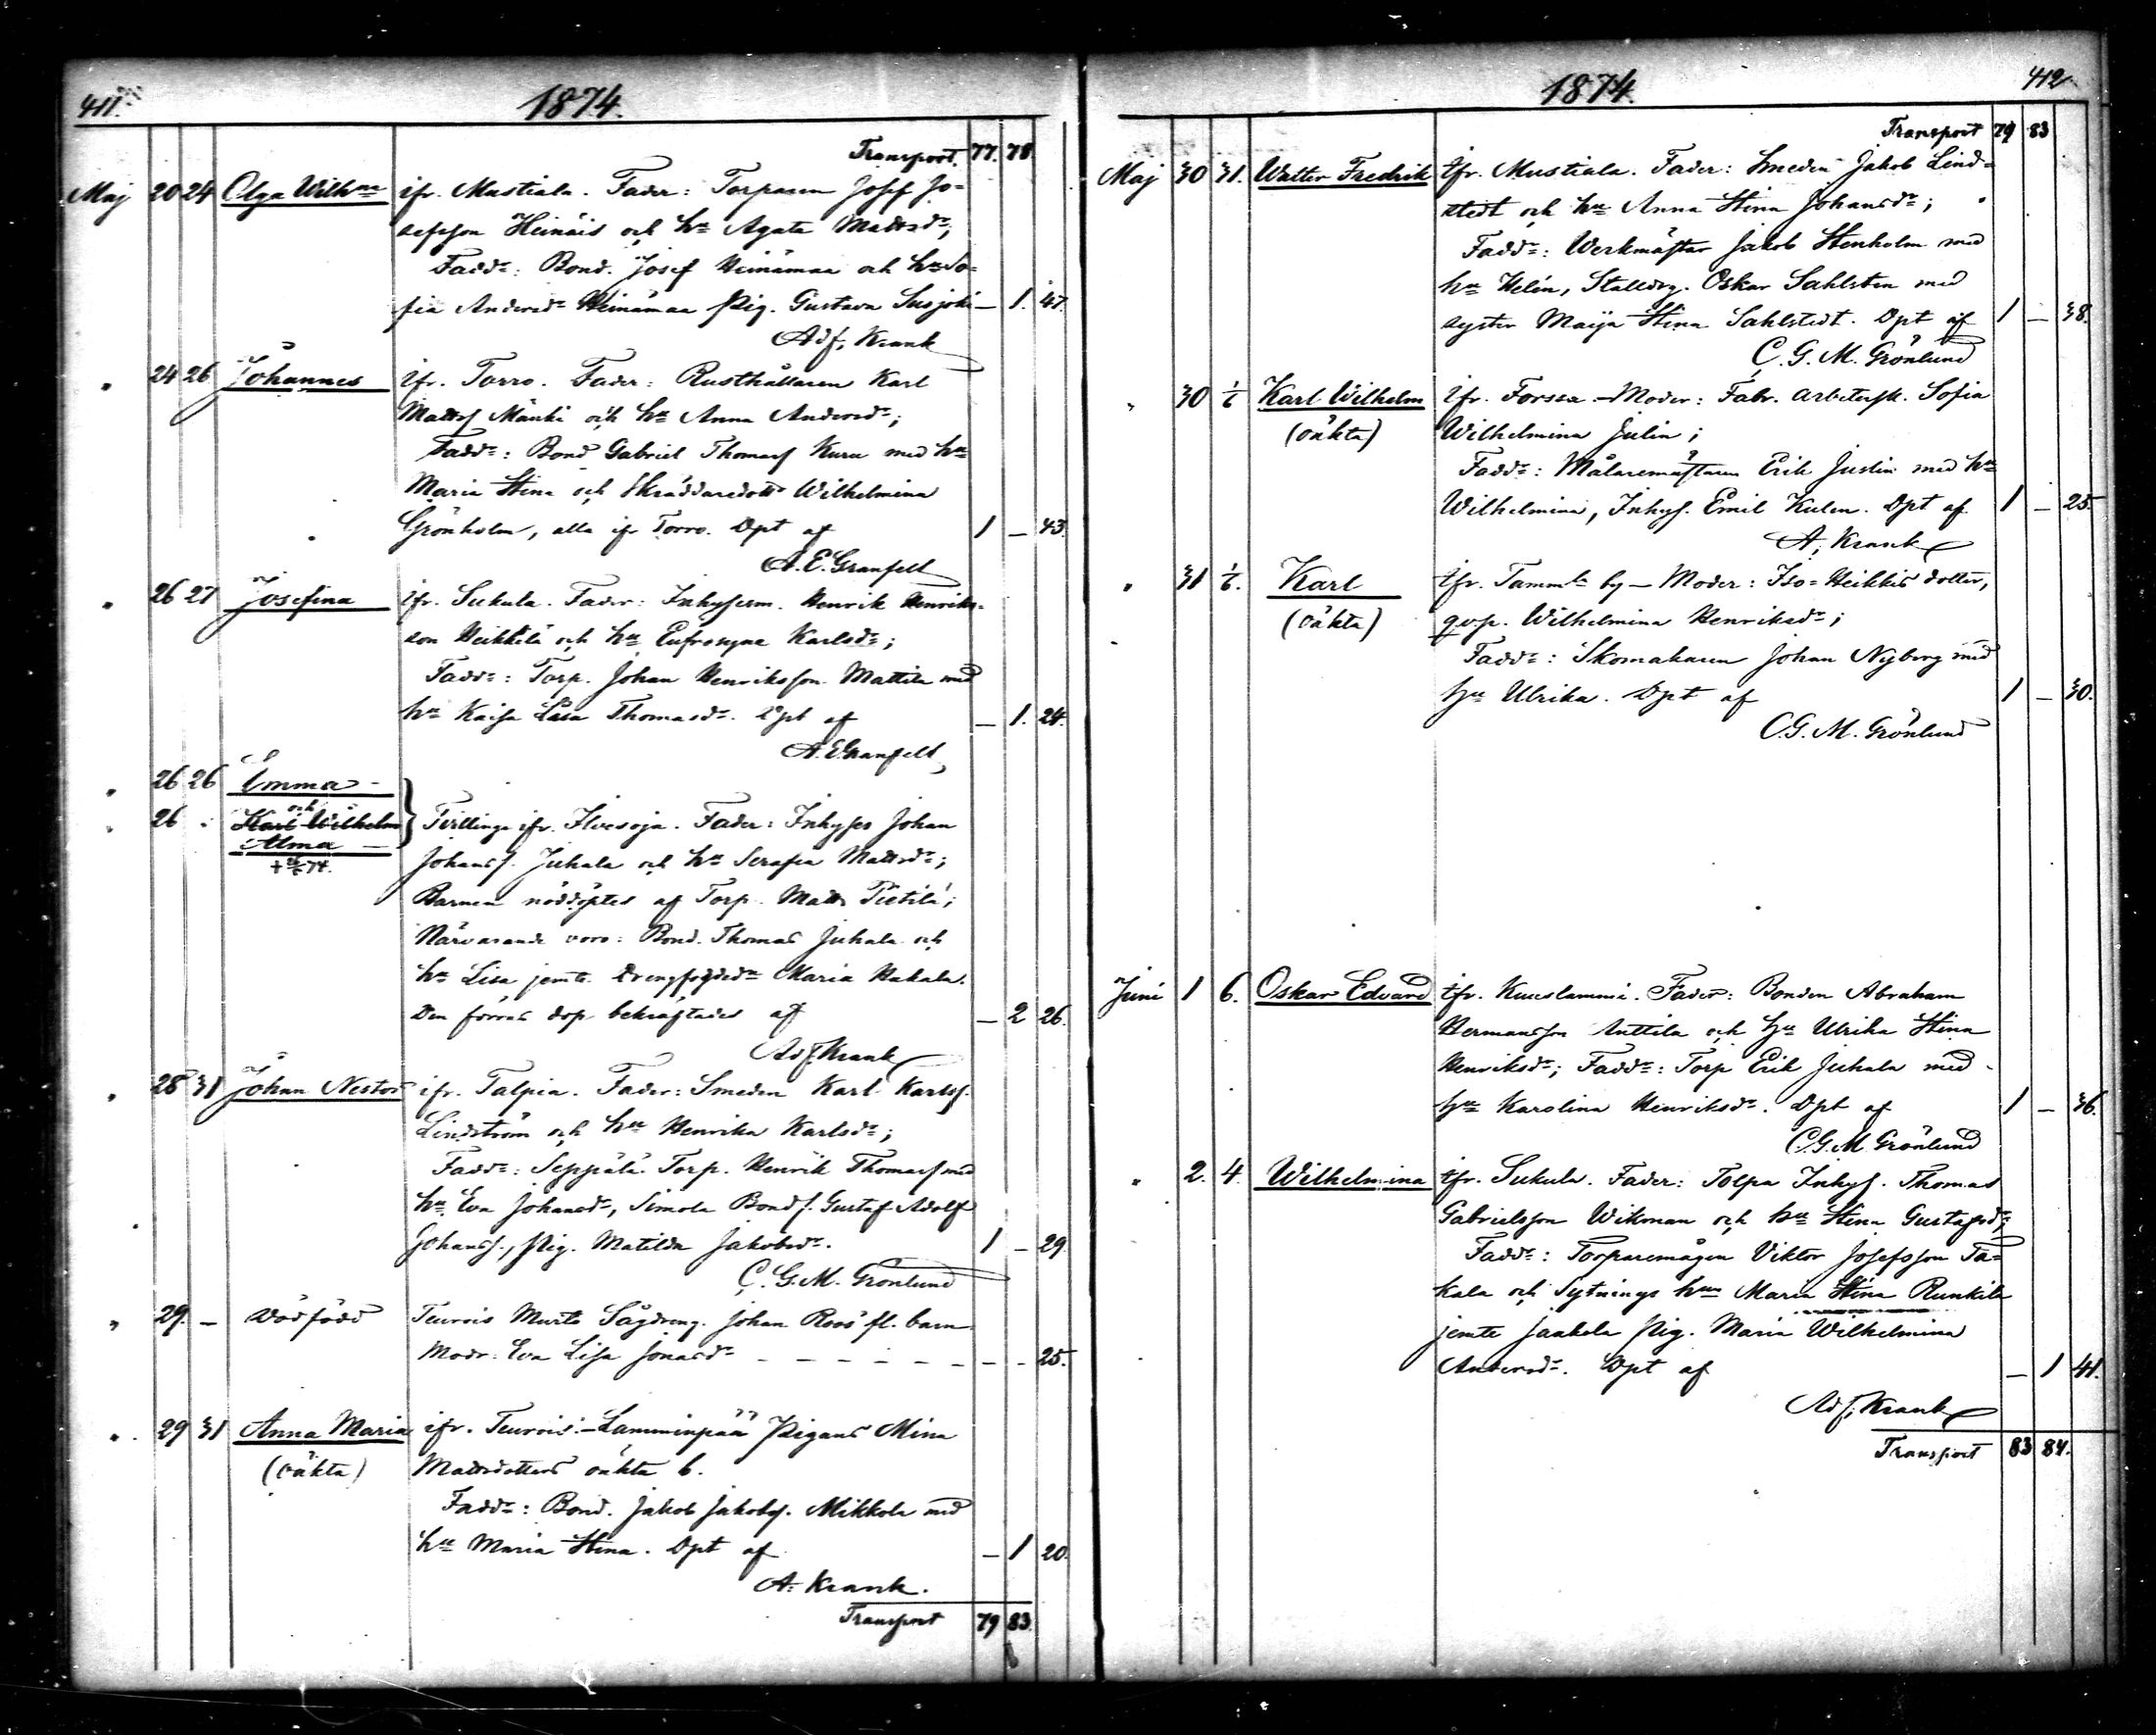 411.
1874.
Transport. 77. 78
Maj 20 24 Olga Wilh:na ifr. Mustiala. Fader: Torparen Josef Jo-
sefsson Heinäis och hu Agata Mattsdr;
Faddr: Bond. Josef Heinämaa och hu So-
fia Andersdr Heinämaa Pig. Gustava Susijoki — 1. 47.
Adf. Krank
" 24 26 Johannes ifr. Torro. Fader: Rusthållaren Karl
Mattsf Mänki och hu Anna Andersdr;
Faddr: Bond Gabriel Thomasf Kuru med hu
Maria Stina och Skräddaredottr Wilhelmina
Grönholm, alla ifr Torro. Dpt af 1 — 43.
A. E. Granfelt
" 26 27 Josefina ifr. Sukula. Fader: Inhysesm. Henrik Henriks-
son Heikkilä och hu Eufrosyne Karlsdr;
Faddr: Torp. Johan Henriksson Mattila med
hu Kaisa Lisa Thomasdr. Dpt af — 1. 24.
A. E. Granfelt
" 26 26 Emma —
och
" 26 " Karl Wilhelm Tvillingar ifr. Ilvesoja. Fader: Inhyses Johan
Alma —
Johansf. Juhala och hu Serafia Mattsdr;
74.
Barnen nöddöptes af Torp. Matts Pietilä;
Närvarande voro: Bond. Thomas Juhala och
hu Lisa jemte Drengfogdedr Maria Hakala.
Den förras dop bekräftades af — 2 26.
Adf. Krank
" 28 31 Johan Nestor ifr. Talpia. Fader: Smeden Karl Karlsf.
Lindström och hu Henrika Karlsdr;
Faddr: Seppälä Torp. Henrik Thomasf med
hu Eva Johansdr, Simola Bondf. Gustaf Adolf
Johansf., Pig. Matilda Jakobsdr. 1 — 29.
C. G. M. Grönlund
" 29. — Dödfödd Teurois Murto Sågdreng. Johan Roos' fl. barn
Modr. Eva Lisa Jonasdr — — — — — — — — 25.
" 29 31 Anna Maria ifr. Teurois - Lamminpää Pigans Mina
(oäkta) Mattsdotters oäkta b.
Faddr: Bond. Jakob Jakobsf. Mikkola med
hu Maria Stina. Dpt af — 1 20.
A. Krank.
Transport 79 83.
412
1874.
Transport 79 83
Maj 30 31. Walter Fredrik ifr. Mustiala. Fader: Smeden Jakob Lind-
stedt och hu Anna Stina Johansdr;
Faddr: Werkmästar Jakob Stenholm med
hu Helén, Stalldrg. Oskar Sahlsten med
syster Maija Stina Sahlstedt. Dpt af 1 — 38.
C. G. M. Grönlund
" 30 1/6 Karl Wilhelm ifr. Forssa. — Moder: Fabr. arbetersk. Sofia
(oäkta) Wilhelmina Julin;
Faddr: Målaremästaren Erik Juslin med hu
Wilhelmina, Inhys. Emil Kulen. Dpt af 1 — 25.
A. Krank
" 31 1/6. Karl ifr. Tamm:la by — Moder: Iso-Heikkis dotter,
(oäkta) qvp. Wilhelmina Henriksdr;
Faddr: Skomakaren Johan Nyberg med
hu Ulrika. Dpt af 1 — 30.
C. G. M. Grönlund
Juni 1 6. Oskar Edvard ifr. Kuuslammi. Fader: Bonden Abraham
Hermansson Anttila och hu Ulrika Stina
Henriksdr; Faddr: Torp Erik Juhala med
hu Karolina Henriksdr. Dpt af 1 — 36.
C. G. M. Grönlund
" 2. 4. Wilhelmina ifr. Sukula. Fader: Tolpa Inhys. Thomas
Gabrielsson Wikman och hu Stina Gustafsdr;
Faddr: Torparemågen Viktor Josefsson Ta-
kala och Sytnings hun Maria Stina Runkila
jemte Jaakola Pig. Maria Wilhelmina
Andersdr. Dpt af — 1 41.
Adf. Krank
Transport 83 84.